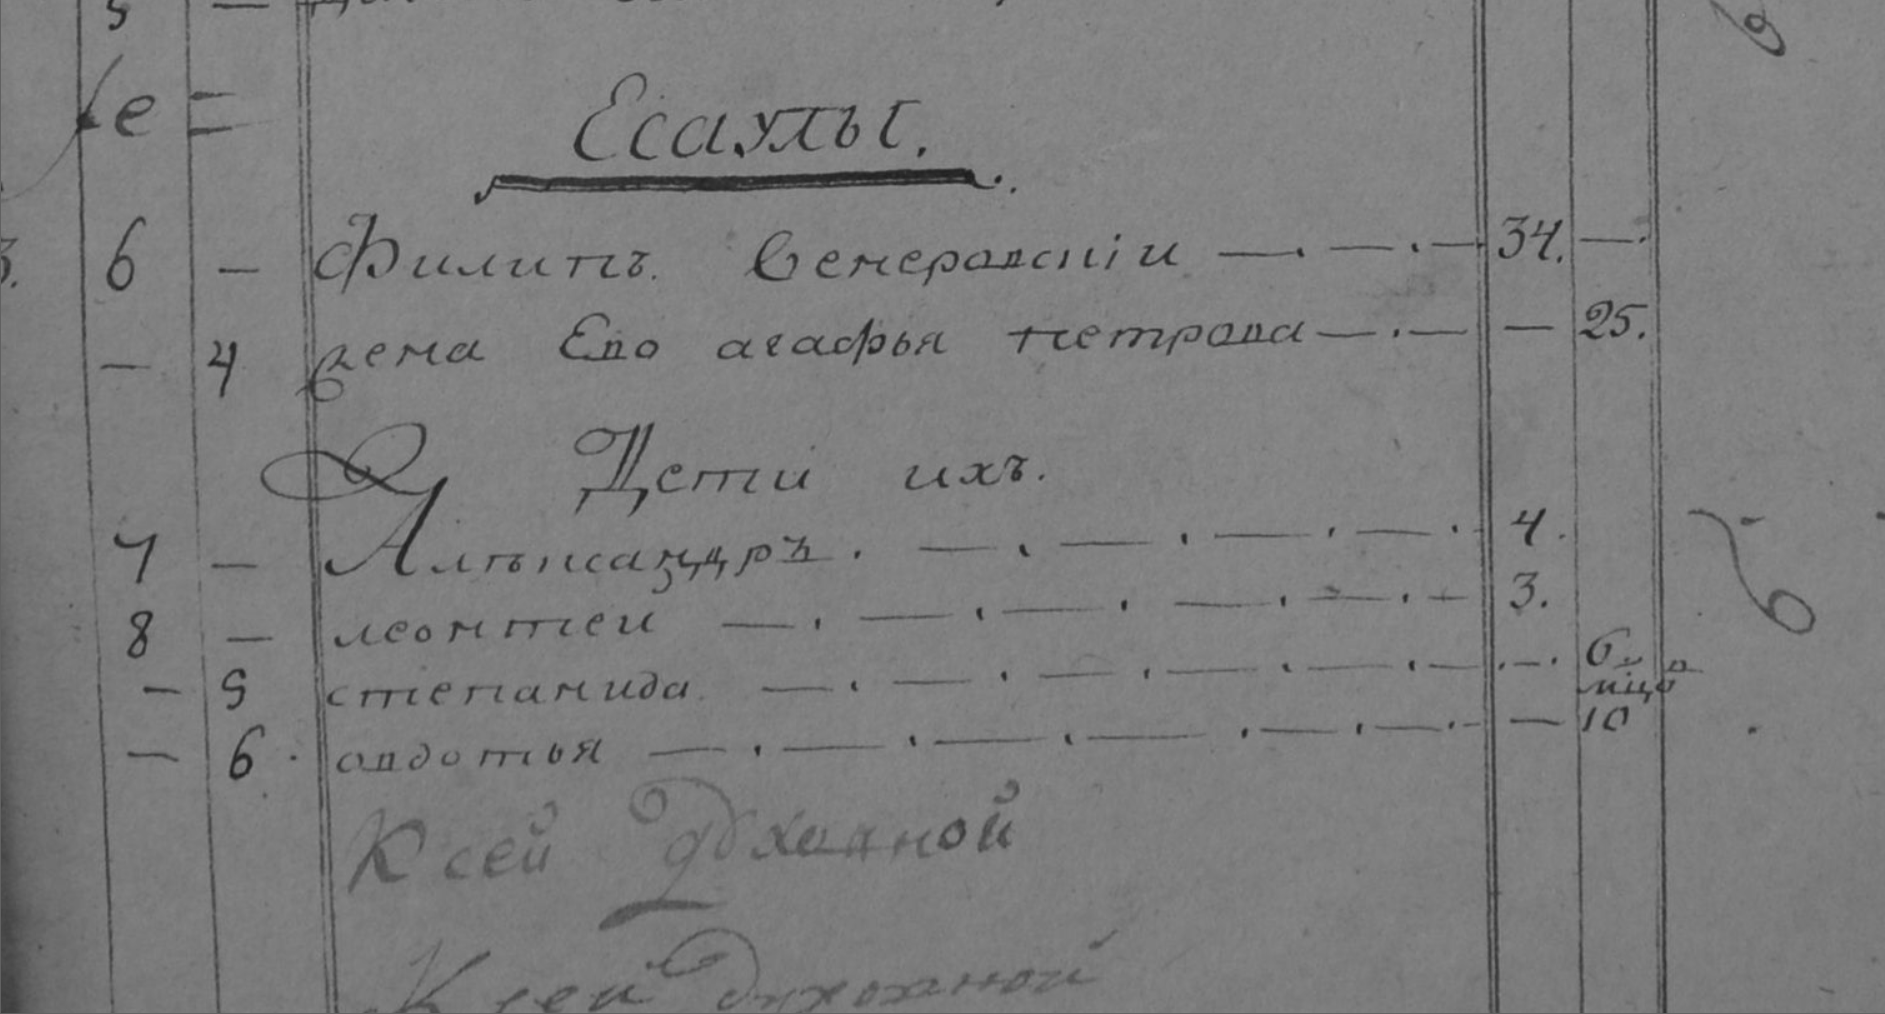 5 —
е =
Есаулы.
6 — Филипъ. Венеровскiи — . — . — 34. —
— 4 жена Ево агафья петрова — . — — 25.
Дети ихъ.
7 — Алѣксандръ . — . — . — . — . 4.
8 — леонтеи — . — . — . — . — 3.
— 5 степанида — . — . — . — . — . — . 6
мцо
— 6 овдотья — . — . — . — . — . — 10
К сей духовной
К сей духовной